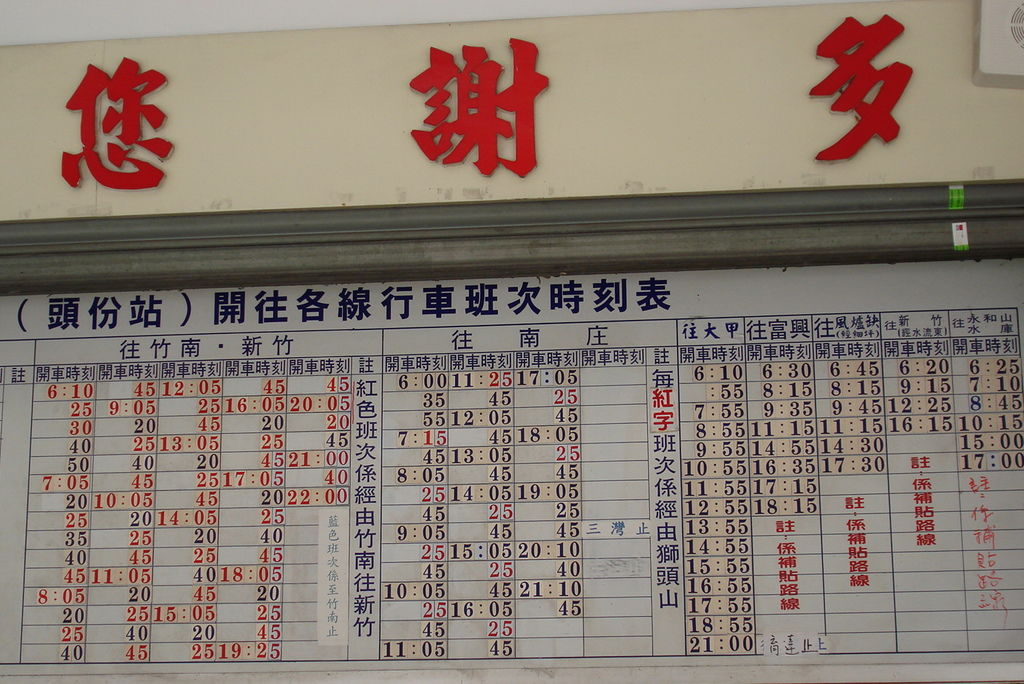 多謝您
（頭份站）開往各線行車班次時刻表
往竹南·新竹 往南庄 往大甲 往富興 往風爐缺(經細坪) 往新竹(經水流東) 往永和山水庫
註 開車時刻 開車時刻 開車時刻 開車時刻 開車時刻 註 開車時刻 開車時刻 開車時刻 開車時刻 註 開車時刻 開車時刻 開車時刻 開車時刻 開車時刻
6:10 45 12:05 45 45 6:00 11:25 17:05 6:10 6:30 6:45 6:20 6:25
25 9:05 25 16:05 20:05 35 45 25 55 8:15 8:15 9:15 7:10
30 20 45 20 20 55 12:05 45 7:55 9:35 9:45 12:25 8:45
40 25 13:05 25 45 7:15 45 18:05 8:55 11:15 11:15 16:15 10:15
50 40 20 45 21:00 45 13:05 25 9:55 14:55 14:30 15:00
7:05 45 25 17:05 40 8:05 45 45 10:55 16:35 17:30 17:00
20 10:05 45 20 22:00 25 14:05 19:05 11:55 17:15
25 20 14:05 25 45 25 25 12:55 18:15
35 25 20 40 9:05 45 45 三灣止 13:55
40 45 25 45 25 15:05 20:10 14:55
45 11:05 40 18:05 45 25 40 15:55
8:05 20 45 20 10:05 45 21:10 16:55
20 25 15:05 25 25 16:05 45 17:55
25 40 20 45 45 25 18:55
40 45 25 19:25 11:05 45 21:00
藍色班次係至竹南止
紅色班次係經由竹南往新竹
每紅字班次係經由獅頭山
註:係補貼路線
註:係補貼路線
註:係補貼路線
註:係補貼路線